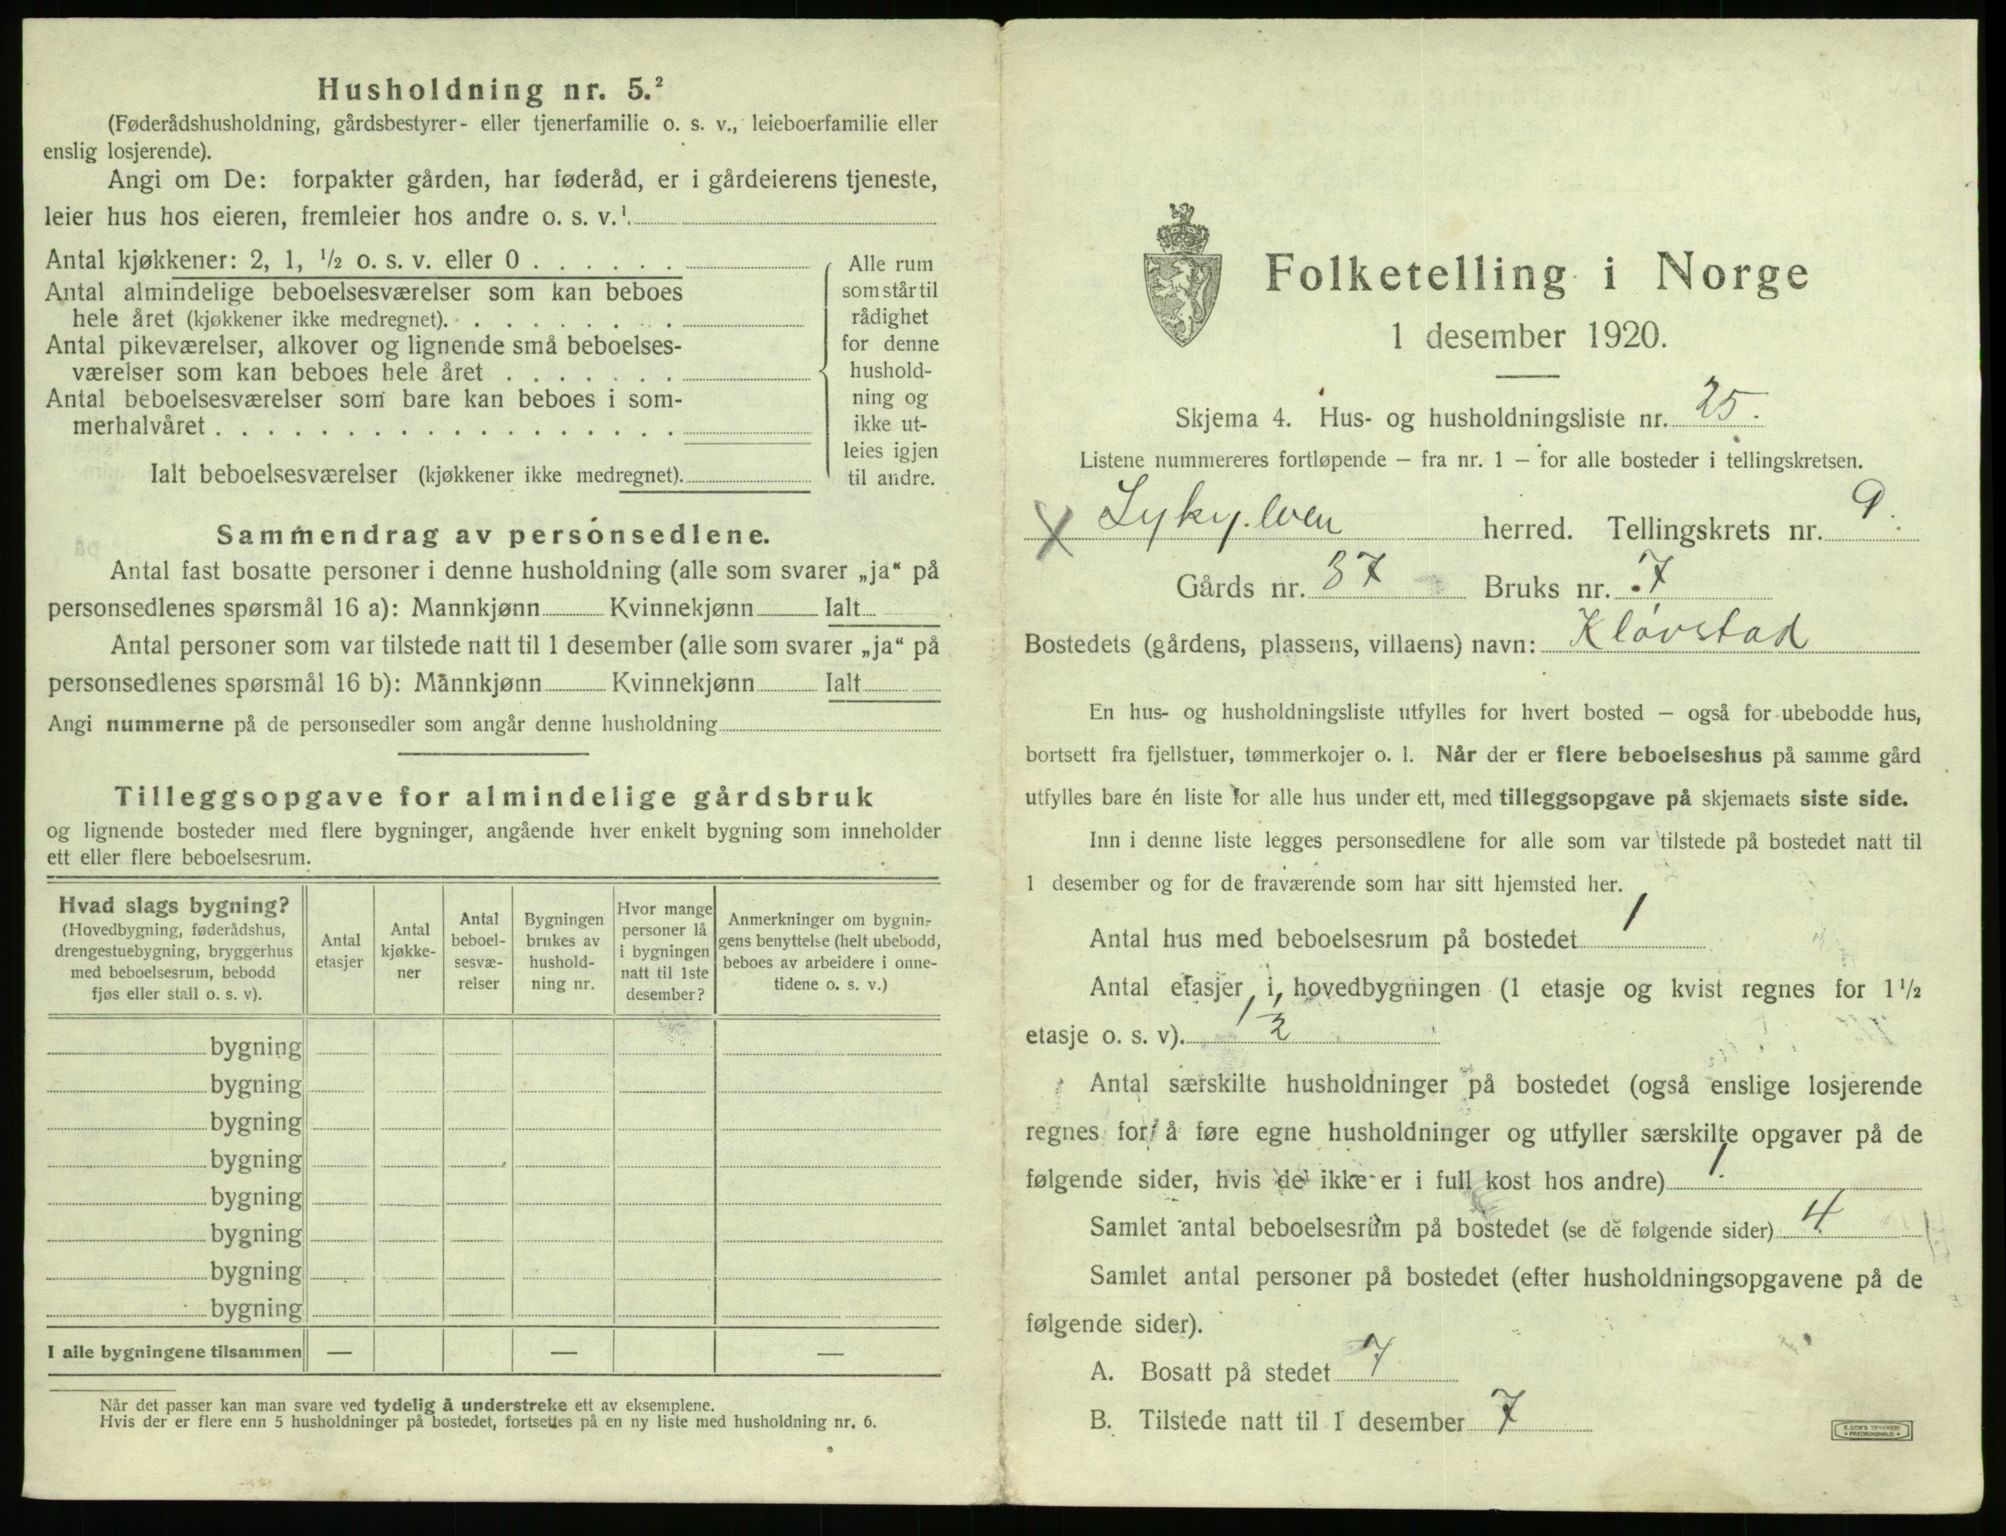 Husholdning nr. 5.²
(Føderådshusholdning, gårdsbestyrer- eller tjenerfamilie o. s. v., leieboerfamilie eller
enslig losjerende).
Angi om De: forpakter gården, har føderåd, er i gårdeierens tjeneste,
leier hus hos eieren, fremleier hos andre o. s. v.¹
Antal kjøkkener: 2, 1, ½ o. s. v. eller 0 . . . . . .
Antal almindelige beboelsesværelser som kan beboes
hele året (kjøkkener ikke medregnet). . . . . . . . .
Antal pikeværelser, alkover og lignende små beboelses-
værelser som kan beboes hele året . . . . . . .
Antal beboelsesværelser som bare kan beboes i som-
merhalvåret . . . . . . . . . . . . . . . . . .
Ialt beboelsesværelser (kjøkkener ikke medregnet).
Alle rum
som står til
rådighet
for denne
hushold-
ning og
ikke ut-
leies igjen
til andre.
Sammendrag av personsedlene.
Antal fast bosatte personer i denne husholdning (alle som svarer „ja“ på
personsedlenes spørsmål 16 a): Mannkjønn Kvinnekjønn Ialt
Antal personer som var tilstede natt til 1 desember (alle som svarer „ja“ på
personsedlenes spørsmål 16 b): Mannkjønn Kvinnekjønn Ialt
Angi nummerne på de personsedler som angår denne husholdning
Tilleggsopgave for almindelige gårdsbruk
og lignende bosteder med flere bygninger, angående hver enkelt bygning som inneholder
ett eller flere beboelsesrum.
Hvad slags bygning?
(Hovedbygning, føderådshus,
drengestuebygning, bryggerhus
med beboelsesrum, bebodd
fjøs eller stall o. s. v).
Antal
etasjer
Antal
kjøkke-
ner
Antal
beboel-
sesvæ-
relser
Bygningen
brukes av
hushold-
ning nr.
Hvor mange
personer lå
i bygningen
natt til 1ste
desember?
Anmerkninger om bygnin-
gens benyttelse (helt ubebodd,
beboes av arbeidere i onne-
tidene o. s. v.)
bygning
bygning
bygning
bygning
bygning
bygning
bygning
bygning
I alle bygningene tilsammen — — —
Når det passer kan man svare ved tydelig å understreke ett av eksemplene.
Hvis der er flere enn 5 husholdninger på bostedet, fortsettes på en ny liste med husholdning nr. 6.
Folketelling i Norge
1 desember 1920.
Skjema 4. Hus- og husholdningsliste nr. 25.
Listene nummereres fortløpende – fra nr. 1 – for alle bosteder i tellingskretsen.
X Sykylven herred. Tellingskrets nr. 9.
Gårds nr. 37 Bruks nr. 7
Bostedets (gårdens, plassens, villaens) navn: Kløvstad
En hus- og husholdningsliste utfylles for hvert bosted – også for ubebodde hus,
bortsett fra fjellstuer, tømmerkojer o. l. Når der er flere beboelseshus på samme gård
utfylles bare én liste for alle hus under ett, med tilleggsopgave på skjemaets siste side.
Inn i denne liste legges personsedlene for alle som var tilstede på bostedet natt til
1 desember og for de fraværende som har sitt hjemsted her.
Antal hus med beboelsesrum på bostedet 1
Antal etasjer i hovedbygningen (1 etasje og kvist regnes for 1½
etasje o. s. v). 1/2
Antal særskilte husholdninger på bostedet (også enslige losjerende
regnes for å føre egne husholdninger og utfyller særskilte opgaver på de
følgende sider, hvis de ikke er i full kost hos andre) 1.
Samlet antal beboelsesrum på bostedet (se de følgende sider) 4
Samlet antal personer på bostedet (efter husholdningsopgavene på de
følgende sider).
A. Bosatt på stedet 7
B. Tilstede natt til 1 desember 7